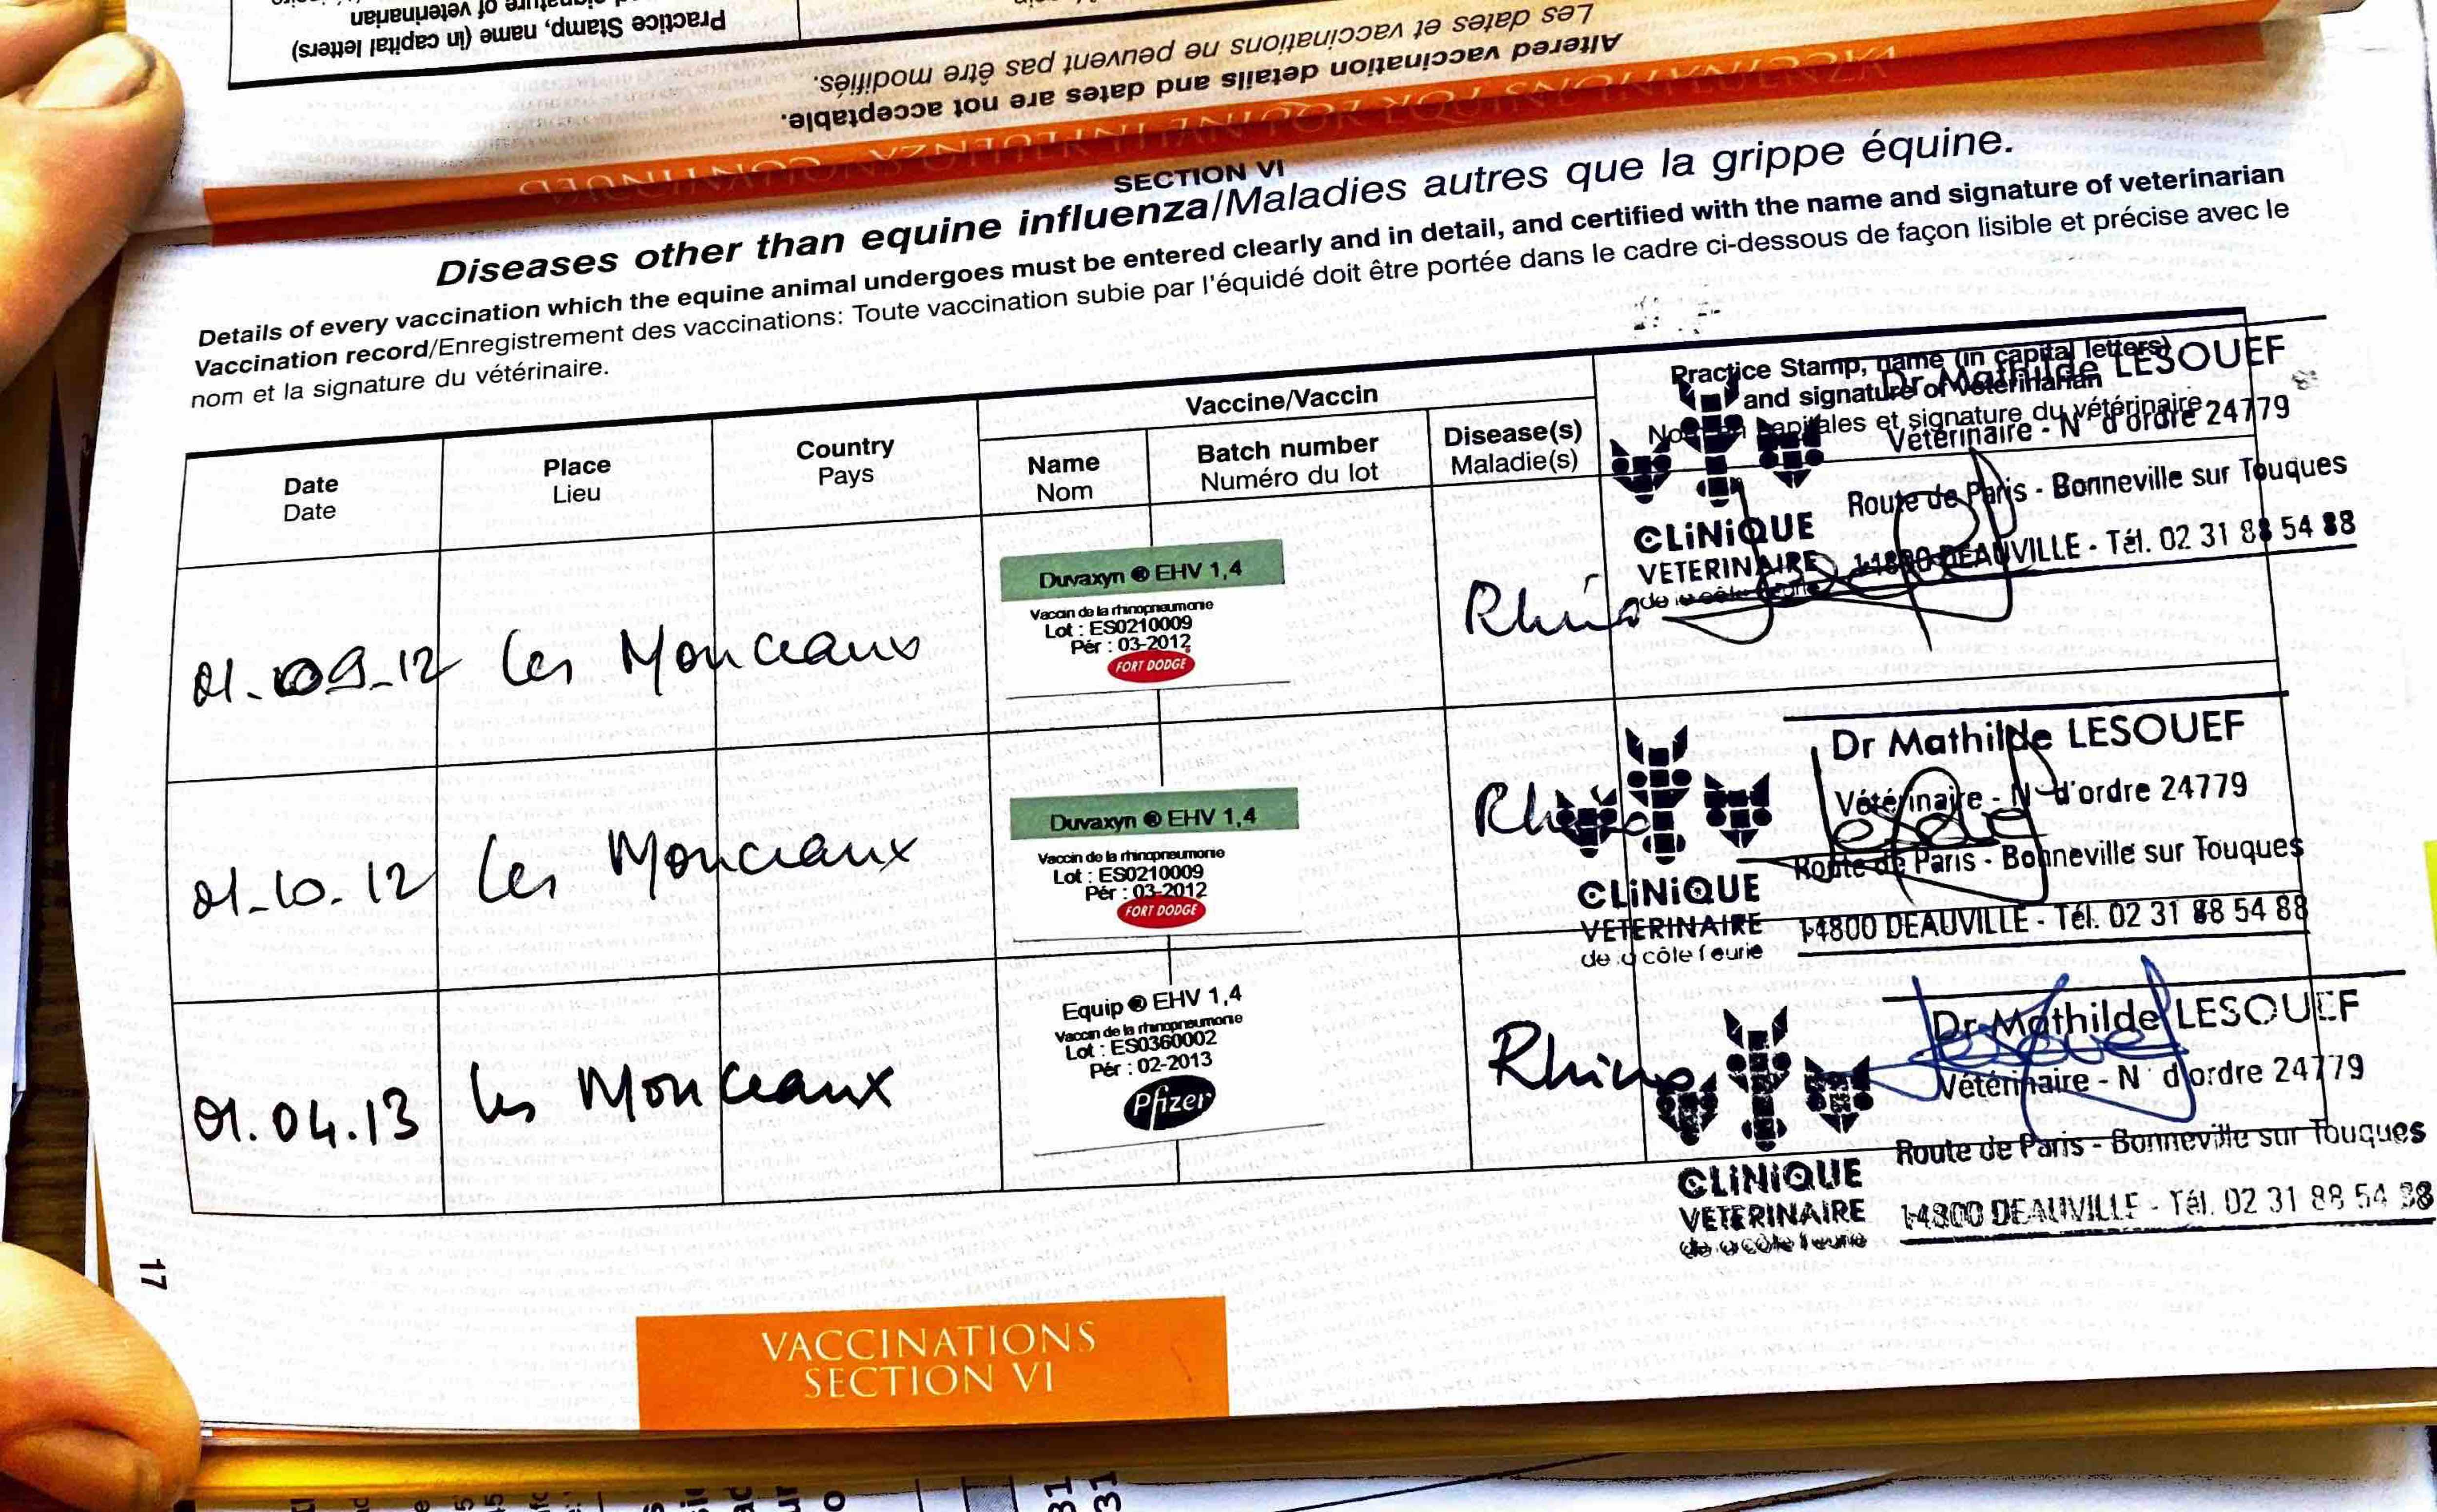 Practice Stamp, name (in capital letters)
signature of veterinarian
Les dates et vaccinations ne peuvent pas être modifiés.
Altered vaccination details and dates are not acceptable.
VACCINATIONS FOR EQUINE INFLUENZA - CONTINUED
SECTION VI
Diseases other than equine influenza/Maladies autres que la grippe équine.
Details of every vaccination which the equine animal undergoes must be entered clearly and in detail, and certified with the name and signature of veterinarian
Vaccination record/Enregistrement des vaccinations: Toute vaccination subie par l'équidé doit être portée dans le cadre ci-dessous de façon lisible et précise avec le
nom et la signature du vétérinaire.
Date
Date
Place
Lieu
Country
Pays
Vaccine/Vaccin
Name
Nom
Batch number
Numéro du lot
Disease(s)
Maladie(s)
Practice Stamp, name (in capital letters)
and signature of veterinarian
capitales et signature du vétérinaire
01.09.12 Les Monceaux
Duvaxyn ® EHV 1,4
Vaccin de la rhinopneumonie
Lot : ES0210009
Pér : 03-2012
FORT DODGE
Rhino
Dr Mathilde LESOUEF
Vétérinaire - N° d'ordre 24779
Route de Paris - Bonneville sur Touques
14800 DEAUVILLE - Tél. 02 31 88 54 88
CLiNiQUE
VETERINAIRE
01.10.12 Les Monceaux
Duvaxyn ® EHV 1,4
Vaccin de la rhinopneumonie
Lot : ES0210009
Pér : 03-2012
FORT DODGE
Rhino
Dr Mathilde LESOUEF
Vétérinaire - N° d'ordre 24779
Route de Paris - Bonneville sur Touques
14800 DEAUVILLE - Tél. 02 31 88 54 88
CLiNiQUE
VETERINAIRE
de la côte fleurie
01.04.13 Les Monceaux
Equip ® EHV 1,4
Vaccin de la rhinopneumonie
Lot : ES0360002
Pér : 02-2013
Pfizer
Rhino
Dr Mathilde LESOUEF
Vétérinaire - N° d'ordre 24779
Route de Paris - Bonneville sur Touques
14800 DEAUVILLE - Tél. 02 31 88 54 88
CLiNiQUE
VETERINAIRE
de la côte fleurie
17
VACCINATIONS
SECTION VI